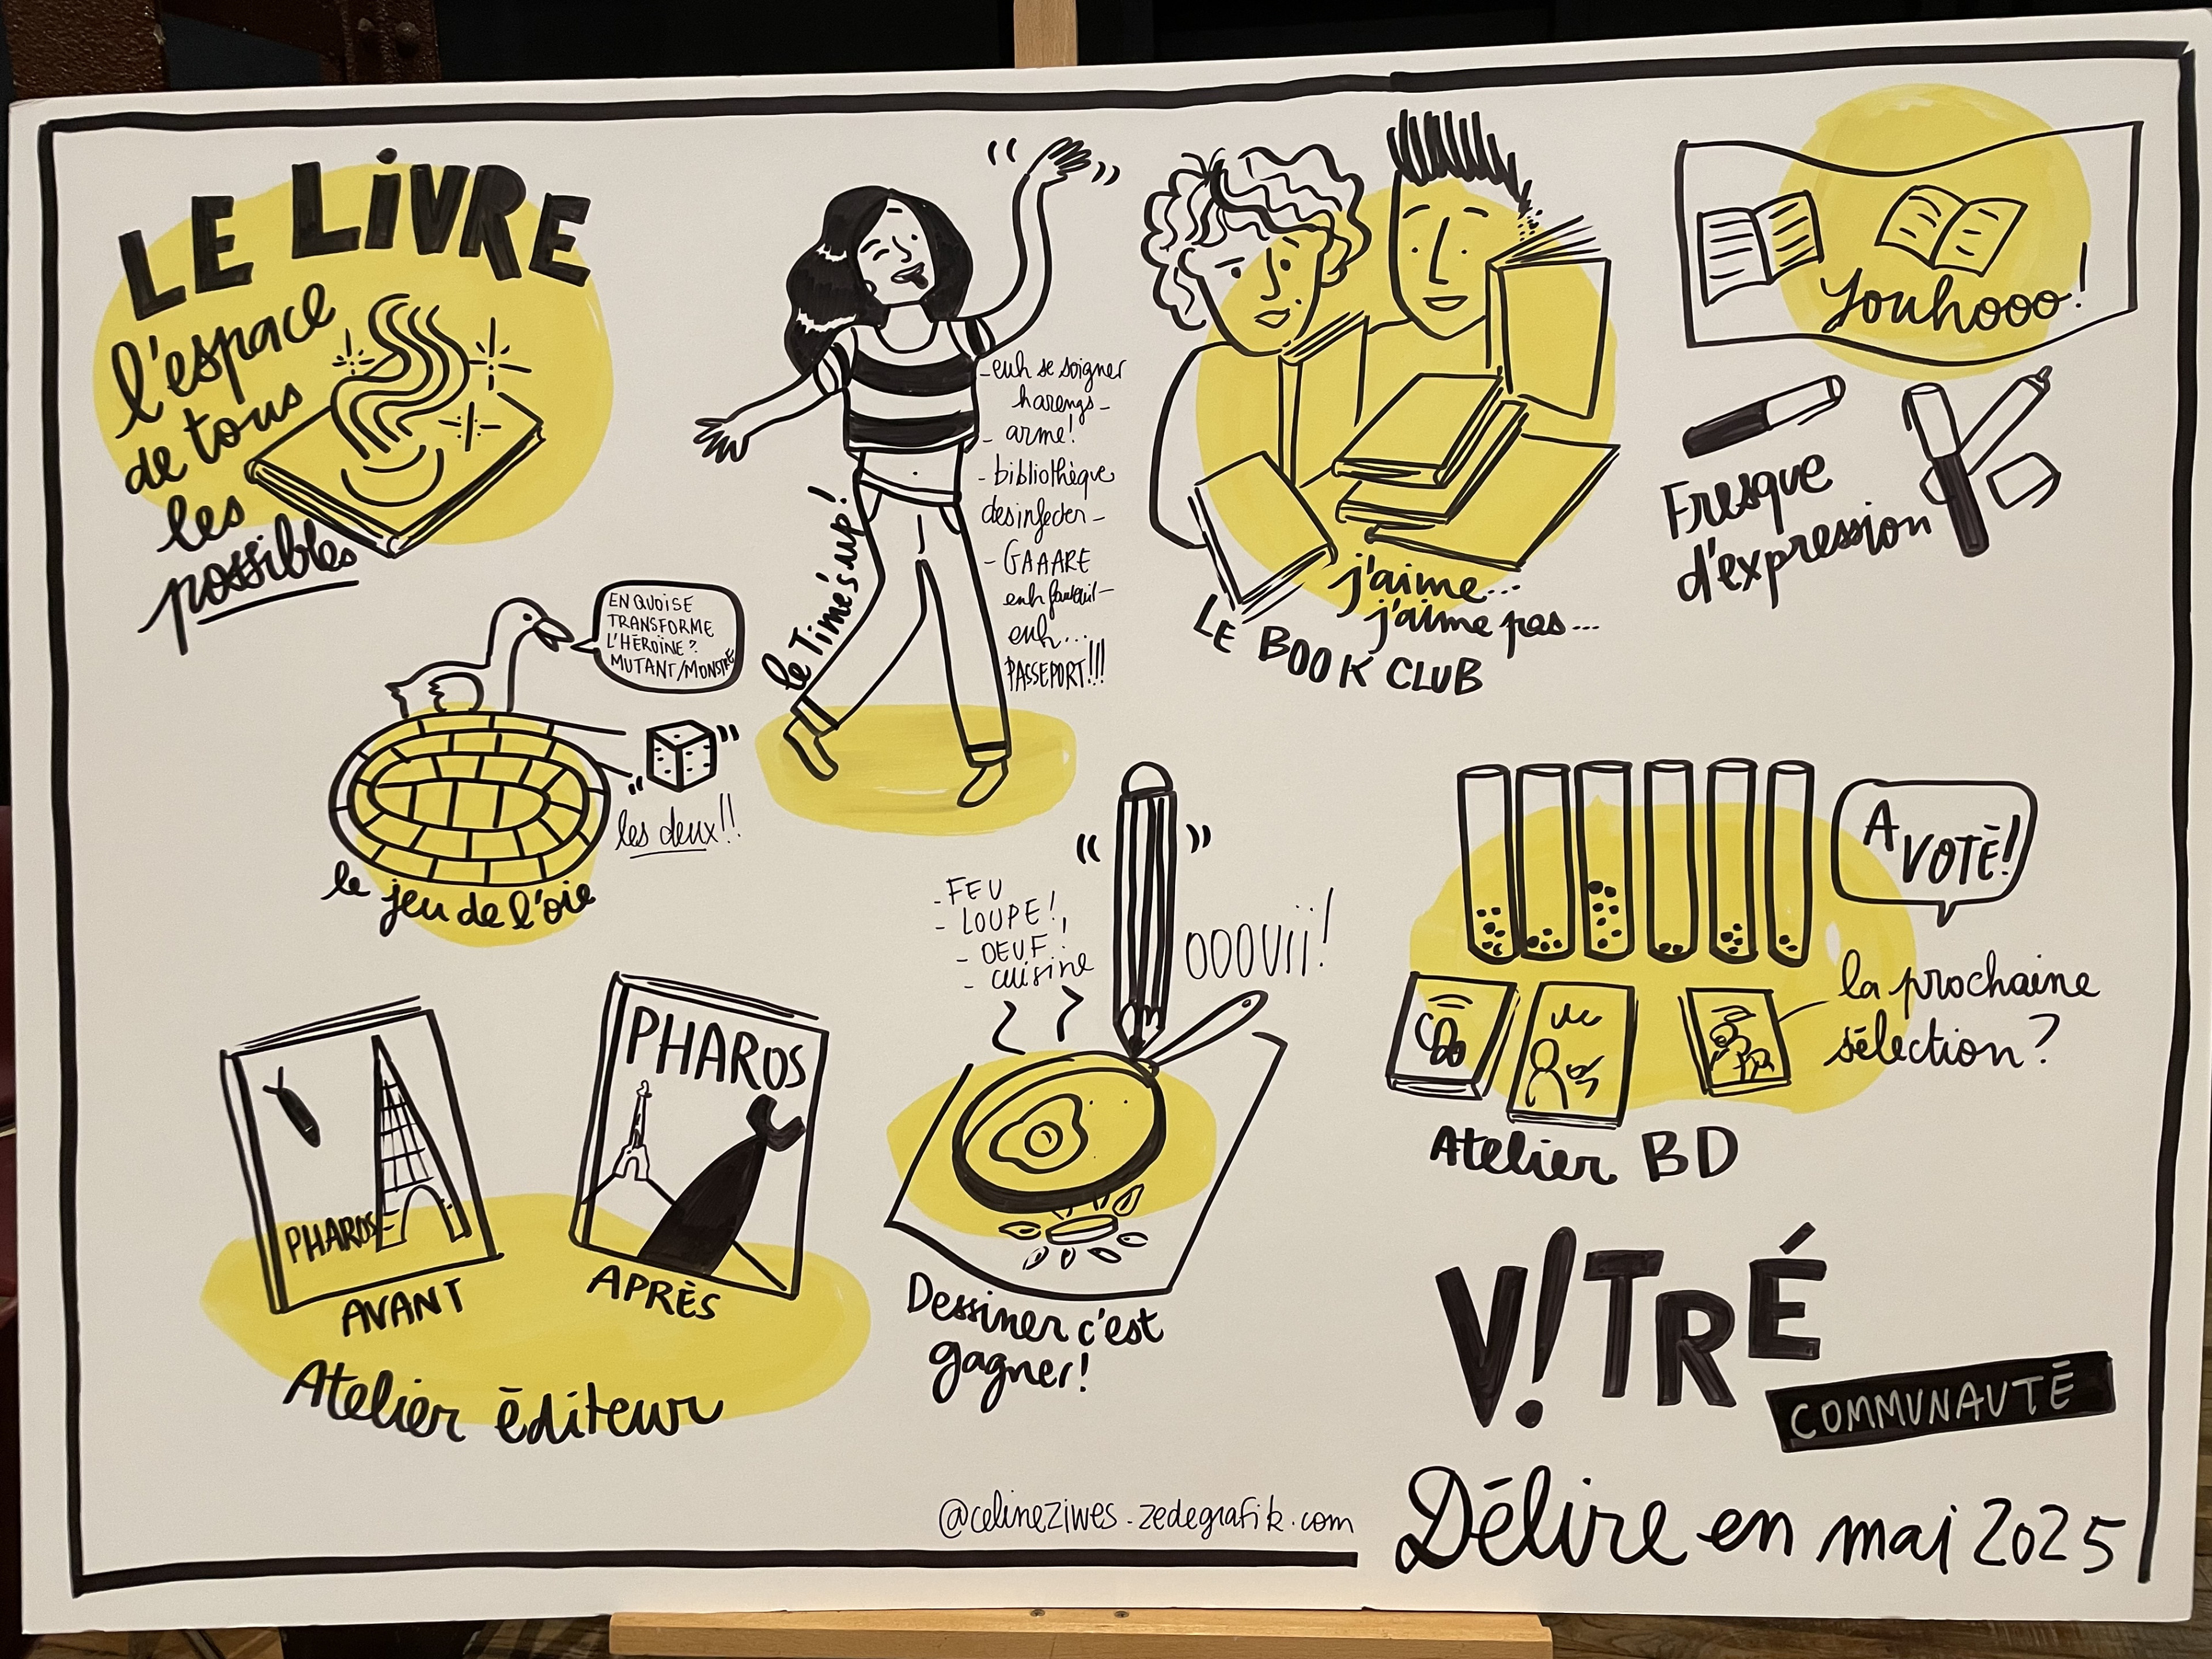 LE LiVRE
l'espace
de tous
les
possibles
le Time's up!
- euh se soigner
harengs -
- arme!
- bibliothèque
desinfecter -
- GAAARE
euh fauteuil -
euh...
PASSEPORT!!!
j'aime...
j'aime pas...
LE BOOK CLUB
Youhooo!
Fresque
d'expression
EN QUOI SE
TRANSFORME
L'HÉROÏNE?
MUTANT/MONSTRE
les deux!!
le jeu de l'oie
- FEU
- LOUPE!
- OEUF
- cuisine
OOOUii!
Dessiner c'est
gagner!
A VOTÉ!
la prochaine
sélection?
Atelier BD
PHAROS
AVANT
PHAROS
APRÈS
Atelier éditeur
V!TRÉ
COMMUNAUTÉ
@celineziwes - zedegrafik.com
Délire en mai 2025